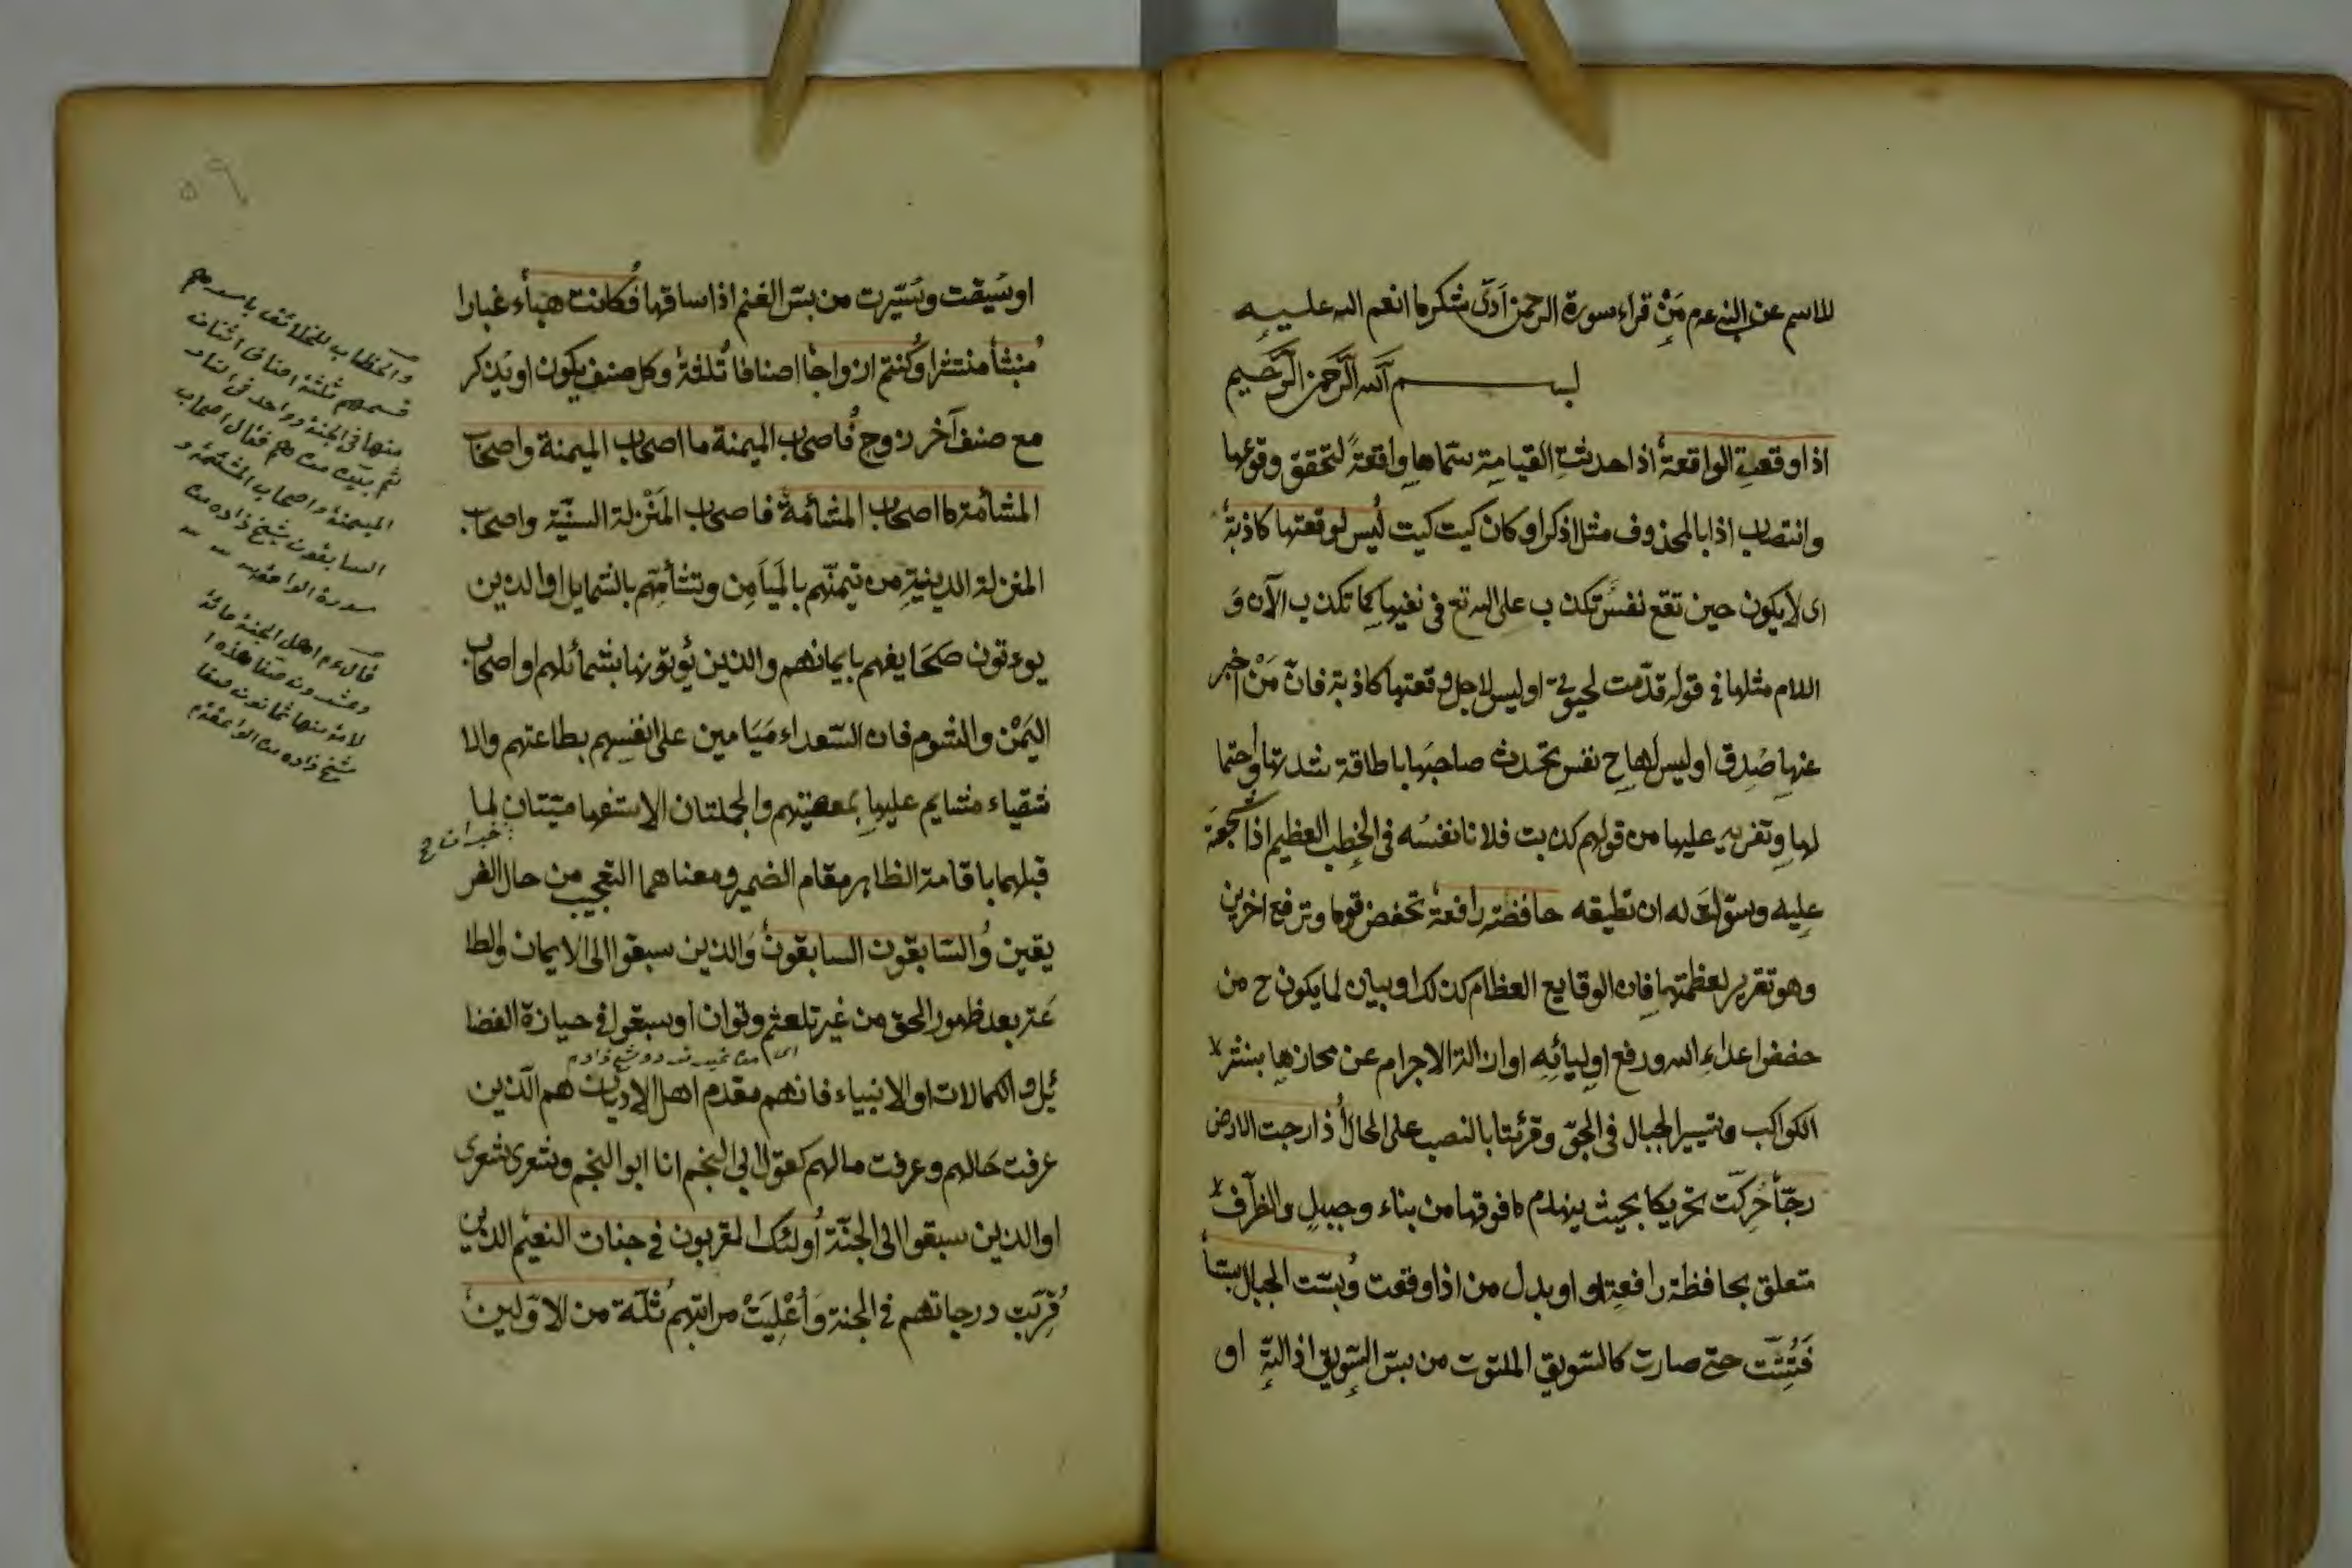 للاسم عن النبي عم مَنْ قراء سورة الرحمن اَدّى شكر ما انعم الله عليه
بسم اللّه الرّحمن الرّحيم
اذا وقعتِ الواقعة اذا حدثتِ القيامة سمّاها واقعةً لتحقق وقوعها
وانتصاب اذا بالمحذوف مثل اذكر او كان كيت كيت ليس لوقعتها كاذبة
اى لا يكون حين تقع نفسٌ تكذب على الله تع فى نفيها كما تكذب الآن وَ
اللام مثلها في قوله قدّمت لحيوتي او ليس لاجل وقعتها كاذبة فانّ مَنْ اخبر
عنها صُدِق او ليس لها ح نفس تحدث صاحبَها باطاقة شدتها واحتما
لها وتغريه عليها من قولهم كذبت فلانا نفسُه فى الخطب العظيم اذا شجعته
عليه وسوّلت له ان تطيقه خافضة رافعة تخفض قوما وترفع اخرين
وهو تقرير لعظمتها فان الوقايع العظام كذلك او بيان لما يكون ح من
خفض اعداءِ الله ورفع اوليائِه او ازالة الاجرام عن محازها بنثر
الكواكب وتسيير الجبال فى الجوّ وقرئتا بالنصب على الحال اذا رجت الارض
رجّا حُرِكّت تحريكا بحيث ينهدم ما فوقها من بناء وجبلٍ والظرف
متعلق بخافظة رافعة او او بدل من اذا وقعت وبسّت الجبال بسّا
فَتُتِّتت حتى صارت كالسّويق الملتوت من بسّ السّويق اذا لتّه او
او سيقت وسَيّرت من بسّ الغنم اذا ساقها فكانت هباء غبارا
مُنبثا منتشرا وكُنتم ازواجا اصنافا ثُلثة وكل صنف يكون او يُذكر
مع صنف آخر زوج فاصحاب الميمنة ما اصحاب الميمنة واصحاب
المشأمة ما اصحاب المشأمة فاصحاب المَنْزلة السنّية واصحاب
المنزلة الدينيةِ من تيمّنهم بالميَامِن وتشأمِهم بالشمايل او الذين
يوءتون صَحَايفهم بايمانهم والذين يُؤتونها بشمائلهم او اصحاب
اليُمْن والشوم فان السّعداء مَيَامين على انفسِهم بطاعتهم والا
شقياء مشايم عليها بمعصيتهم والجملتان الاستفهاميّتان لما
خبران ح
قبلهما باقامة الظاهر مقام الضمير ومعناهما التعجيب من حال الفر
يقين والسّابقون السابقون وَالذين سبقوا الى الايمان والطا
عَتر بعد ظهور الحق من غير تلعثم وتوان او سبقوا في حيازة الفضا
اى من غير تردد شيخ زاده
ئل والكمالات او الانبياء فانهم مقدم اهل الاديان هم الّذين
عرفت حَالهم وعرفت مالهم كقول ابي النجم انا ابو النجم وشعرى شعرى
او الذين سبقوا الى الجنّة اولئك المقربون في جنات النعيم الذين
قرّبت درجاتهم فى الجنة وَأُعْلِيَتْ مراتبهم ثلّة من الاوّلين
والخطاب للخلائق باسرهم
قسمهم ثلثة اصناف اثنان
منها فى الجنة وواحد فى النار
ثم بيّن من هم فقال اصحاب
الميمنة واصحاب المشئمة و
السابقون شيخ زاده من
سورة الواقعة
قال عم اهل الجنة مائة
وعشرون صفا هذه ا
لامة منها ثمانون صفا
شيخ زاده من الواقعة